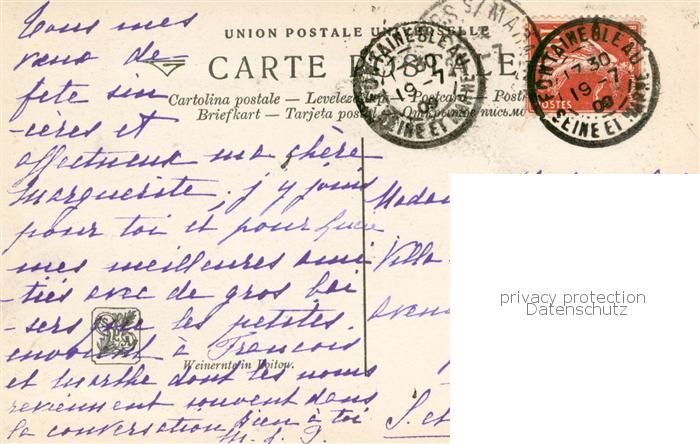 UNION POSTALE UNIVERSELLE
CARTE POSTALE
Cartolina postale — Levelezőlap — Postkarte — Postcard
Briefkart — Tarjeta postal — Открытое письмо
FONTAINEBLEAU
17 30
19 -7
09
SEINE ET MARNE
FONTAINEBLEAU
17 30
19 -7
09
SEINE ET MARNE
POSTES
Tous mes
vœux de
fête sin
-cères et
affectueux ma chère
Marguerite, j'y joins
pour toi et pour
mes meilleures ami
-tiés avec de gros bai
-sers que les petites
envoient à François
et Marthe dont les noms
reviennent souvent dans
la conversation. bien à toi
Mada
Villa
Aven
S. et
Weinernte in Boitow.
privacy protection
Datenschutz